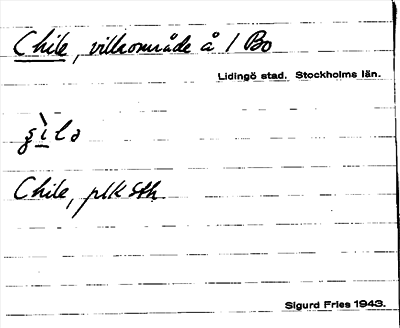 Chile, villaområde å 1 Bo
Lidingö stad. Stockholms län.
Chile, plk Sth
Sigurd Fries 1943.